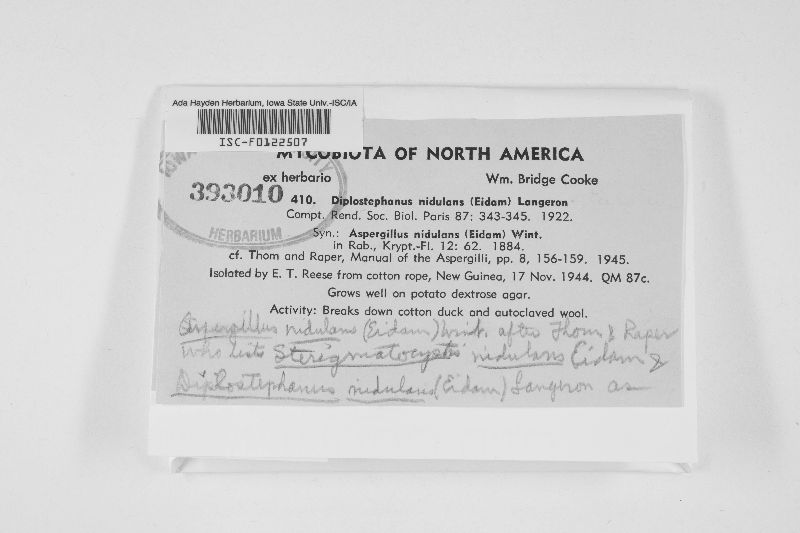 Ada Hayden Herbarium, Iowa State Univ.-ISC/IA
ISC-F0122507
MYCOBIOTA OF NORTH AMERICA
ex herbario Wm. Bridge Cooke
393010
HERBARIUM
410. Diplostephanus nidulans (Eidam) Langeron
Compt. Rend. Soc. Biol. Paris 87: 343-345. 1922.
Syn.: Aspergillus nidulans (Eidam) Wint.
in Rab., Krypt.-Fl. 12: 62. 1884.
cf. Thom and Raper, Manual of the Aspergilli, pp. 8, 156-159. 1945.
Isolated by E. T. Reese from cotton rope, New Guinea, 17 Nov. 1944. QM 87c.
Grows well on potato dextrose agar.
Activity: Breaks down cotton duck and autoclaved wool.
Aspergillus nidulans (Eidam) Wint. after Thom & Raper
who lists Sterigmatocystis nidulans Eidam &
Diplostephanus nidulans (Eidam) Langeron as